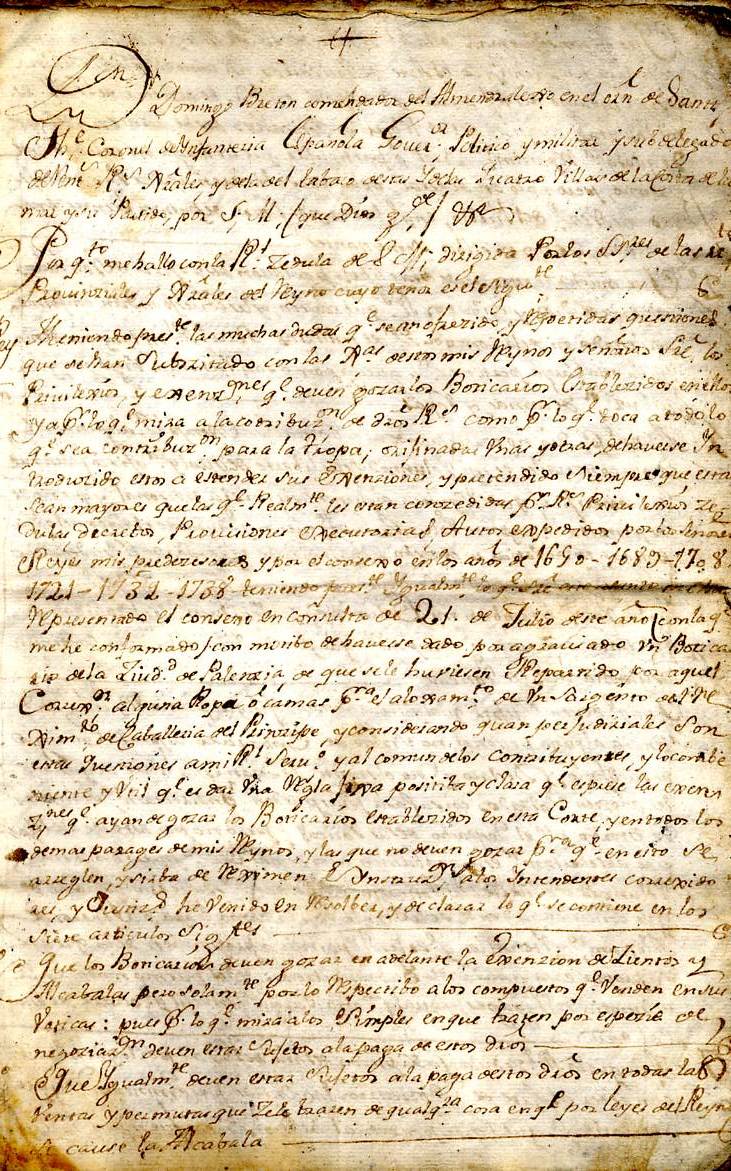 Dn
Domingo Breton comendador del Almendralejo en el orn de Santi
Thê Coronel de Infanteria Española Gover.or Politico y militar y subdelegado
de Rent.s R.s Xrales, y de la del tabaco de esta Quatro Villas de la Costa de la
mar y su Partido, por S. M. (que Dios g.de) &a
Por q.to me hallo con la R.l Zedula de S. M. dirigida Por los SSres de las R.tas
Provinziales y Xrales del Reyno cuyo tenor es el sigu.te
El Rey
Theniendo pres.te las muchas dudas q.e se an ofrezido, y Repetidas questiones
que se han Subzitado con las R.tas de estos mis Reynos y señorios Sre los
Privilexios, y exenz.nes q.e deven gozar los Boticarios Establezidos en ellos
ya p.r lo q.e mira a la contribuz.n de dros R.s como p.r lo q.e toca a todo lo
q.e sea contribuz.on para la tropa; orijinadas unas y otras, de haverse In
troduzido estos a estender sus Exenziones, y pretendido siempre que estas
sean mayores que las q.e Realm.te les estan conzedidas p.r R.s Privilexios ze
dulas decretos, Provisiones executorias, Autos expedidos por los señores
Reyes mis predezesores y por el consexo en los años de 1650 - 1689 - 170 8
1721 - 1732 - 1738 - teniendo pres.te Igualm.te lo q.e Sre este
Representado el consexo en consulta de 21. de Julio de este año (con la q.e
me he conformado) con motibo de haverse dado por agraviado un Botica
rio de la Ziud.d de Palenzia de que se le huviesen Repartido por aquel
Correx.or alguna Ropa ô camas p.ra el aloxam.to de un Sargento del Re
Ximt.o de Caballeria del Prinzipe, y considerando quan perjudiziales son
estas questiones a mi R.l Serv.o y al comun de los Contribuyentes, y lo combe
niente y util q.e es dar una Regla fixa positiba y clara q.e exprese las exen
z.nes q.e ayan de gozar los Boticarios establezidos en esta Corte, y en todos los
demas parages de mis Reynos, y las que no deven gozar p.ra q.e en esto se
arreglen y sirba de Reximen e Instruz.n a los Intendentes correxido
res, y Justiz.s he Venido en Resolber, y declarar lo q.e se contiene en los
siete articulos Sig.tes
Que los Boticarios deven gozar en adelante la Exenzion de Zientos y
Alcabalas pero solam.te por lo Respectibo a los compuestos q.e Venden en sus
Voticas: pues p.r lo q.e mira a los Simples en que hazen por espezie de
negoziaz.on deven estar Sujetos a la paga de estos dros
Que Igualm.te deven estar Sujetos a la paga de estos dros en todas las
Ventas y permutas que zelebraren de qualq.ra cosa en q.e por leyes del Reyno
se cause la Alcabala